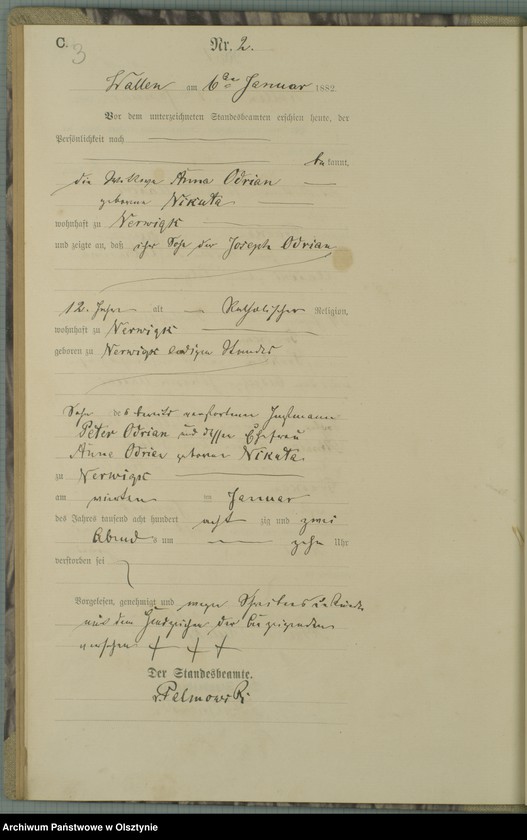 C. 3 Nr. 2.
Wallen am 6ten Januar 1882
Vor dem unterzeichneten Standesbeamten erschien heute, der
Persönlichkeit nach
bekannt,
die Wittwe Anna Odrian
geborene Nikuta
wohnhaft zu Nerwigk
und zeigte an, daß ihr Sohn der Joseph Odrian
12 Jahre alt Katholischer Religion,
wohnhaft zu Nerwigk
geboren zu Nerwigk ledigen Standes
Sohn des bereits verstorbenen Instmann
Peter Odrian und dessen Ehefrau
Anna Odrian geborene Nikuta
zu Nerwigk
am vierten Januar
des Jahres tausend acht hundert acht zig und zwei
Abends um zehn Uhr
verstorben sei
Vorgelesen, genehmigt und wegen Schreibensunkunde
mit dem Handzeichen der Anzeigenden
versehen + + +
Der Standesbeamte.
v. Palmowski
Archiwum Państwowe w Olsztynie